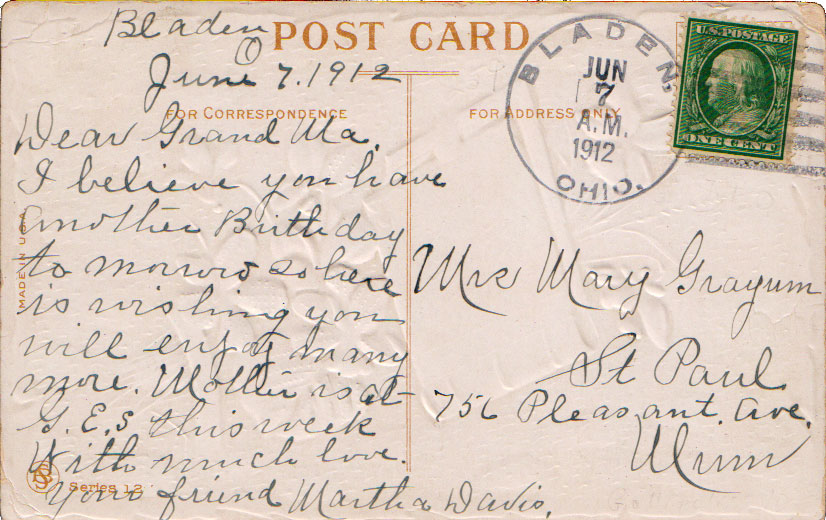 Bladen
O
POST CARD
June 7. 1912
FOR CORRESPONDENCE
Dear Grand Ma.
I believe you have
another Birthday
to morrow so here
is wishing you
will enjoy many
more. Mother is at
G.E.s this week
With much love.
Your friend Martha Davis.
MADE IN U.S.A.
Series 12
FOR ADDRESS ONLY
BLADEN,
JUN
7
A.M.
1912
OHIO.
U.S. POSTAGE
ONE CENT
Mrs Mary Grayum
St Paul
756 Pleasant. Ave.
Minn